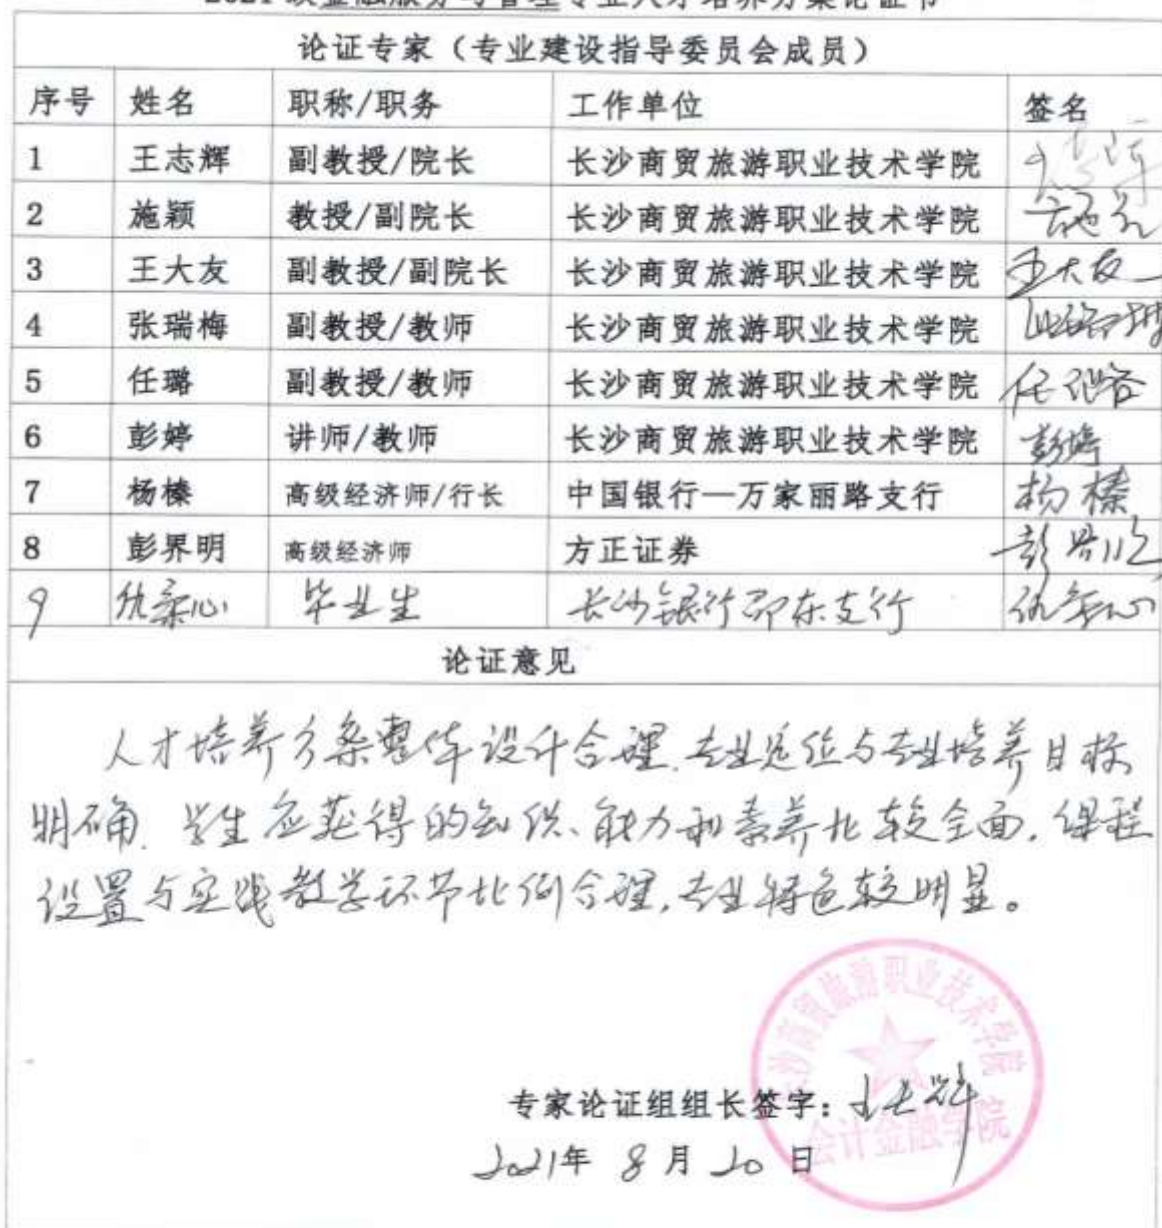 2021级金融服务与管理专业人才培养方案论证书
论证专家（专业建设指导委员会成员）
序号 姓名 职称/职务 工作单位 签名
1 王志辉 副教授/院长 长沙商贸旅游职业技术学院
2 施颖 教授/副院长 长沙商贸旅游职业技术学院 施颖
3 王大友 副教授/副院长 长沙商贸旅游职业技术学院 王大友
4 张瑞梅 副教授/教师 长沙商贸旅游职业技术学院
5 任璐 副教授/教师 长沙商贸旅游职业技术学院 任璐
6 彭婷 讲师/教师 长沙商贸旅游职业技术学院 彭婷
7 杨榛 高级经济师/行长 中国银行—万家丽路支行 杨榛
8 彭界明 高级经济师 方正证券 彭界明
9 仇柔心 毕业生 长沙银行邵东支行 仇柔心
论证意见
人才培养方案整体设计合理，专业定位与专业培养目标
明确，学生应获得的知识、能力和素养比较全面，课程
设置与实践教学环节比例合理，专业特色较明显。
长沙商贸旅游职业技术学院
会计金融学院
专家论证组组长签字：王志辉
2021年 8月 20日